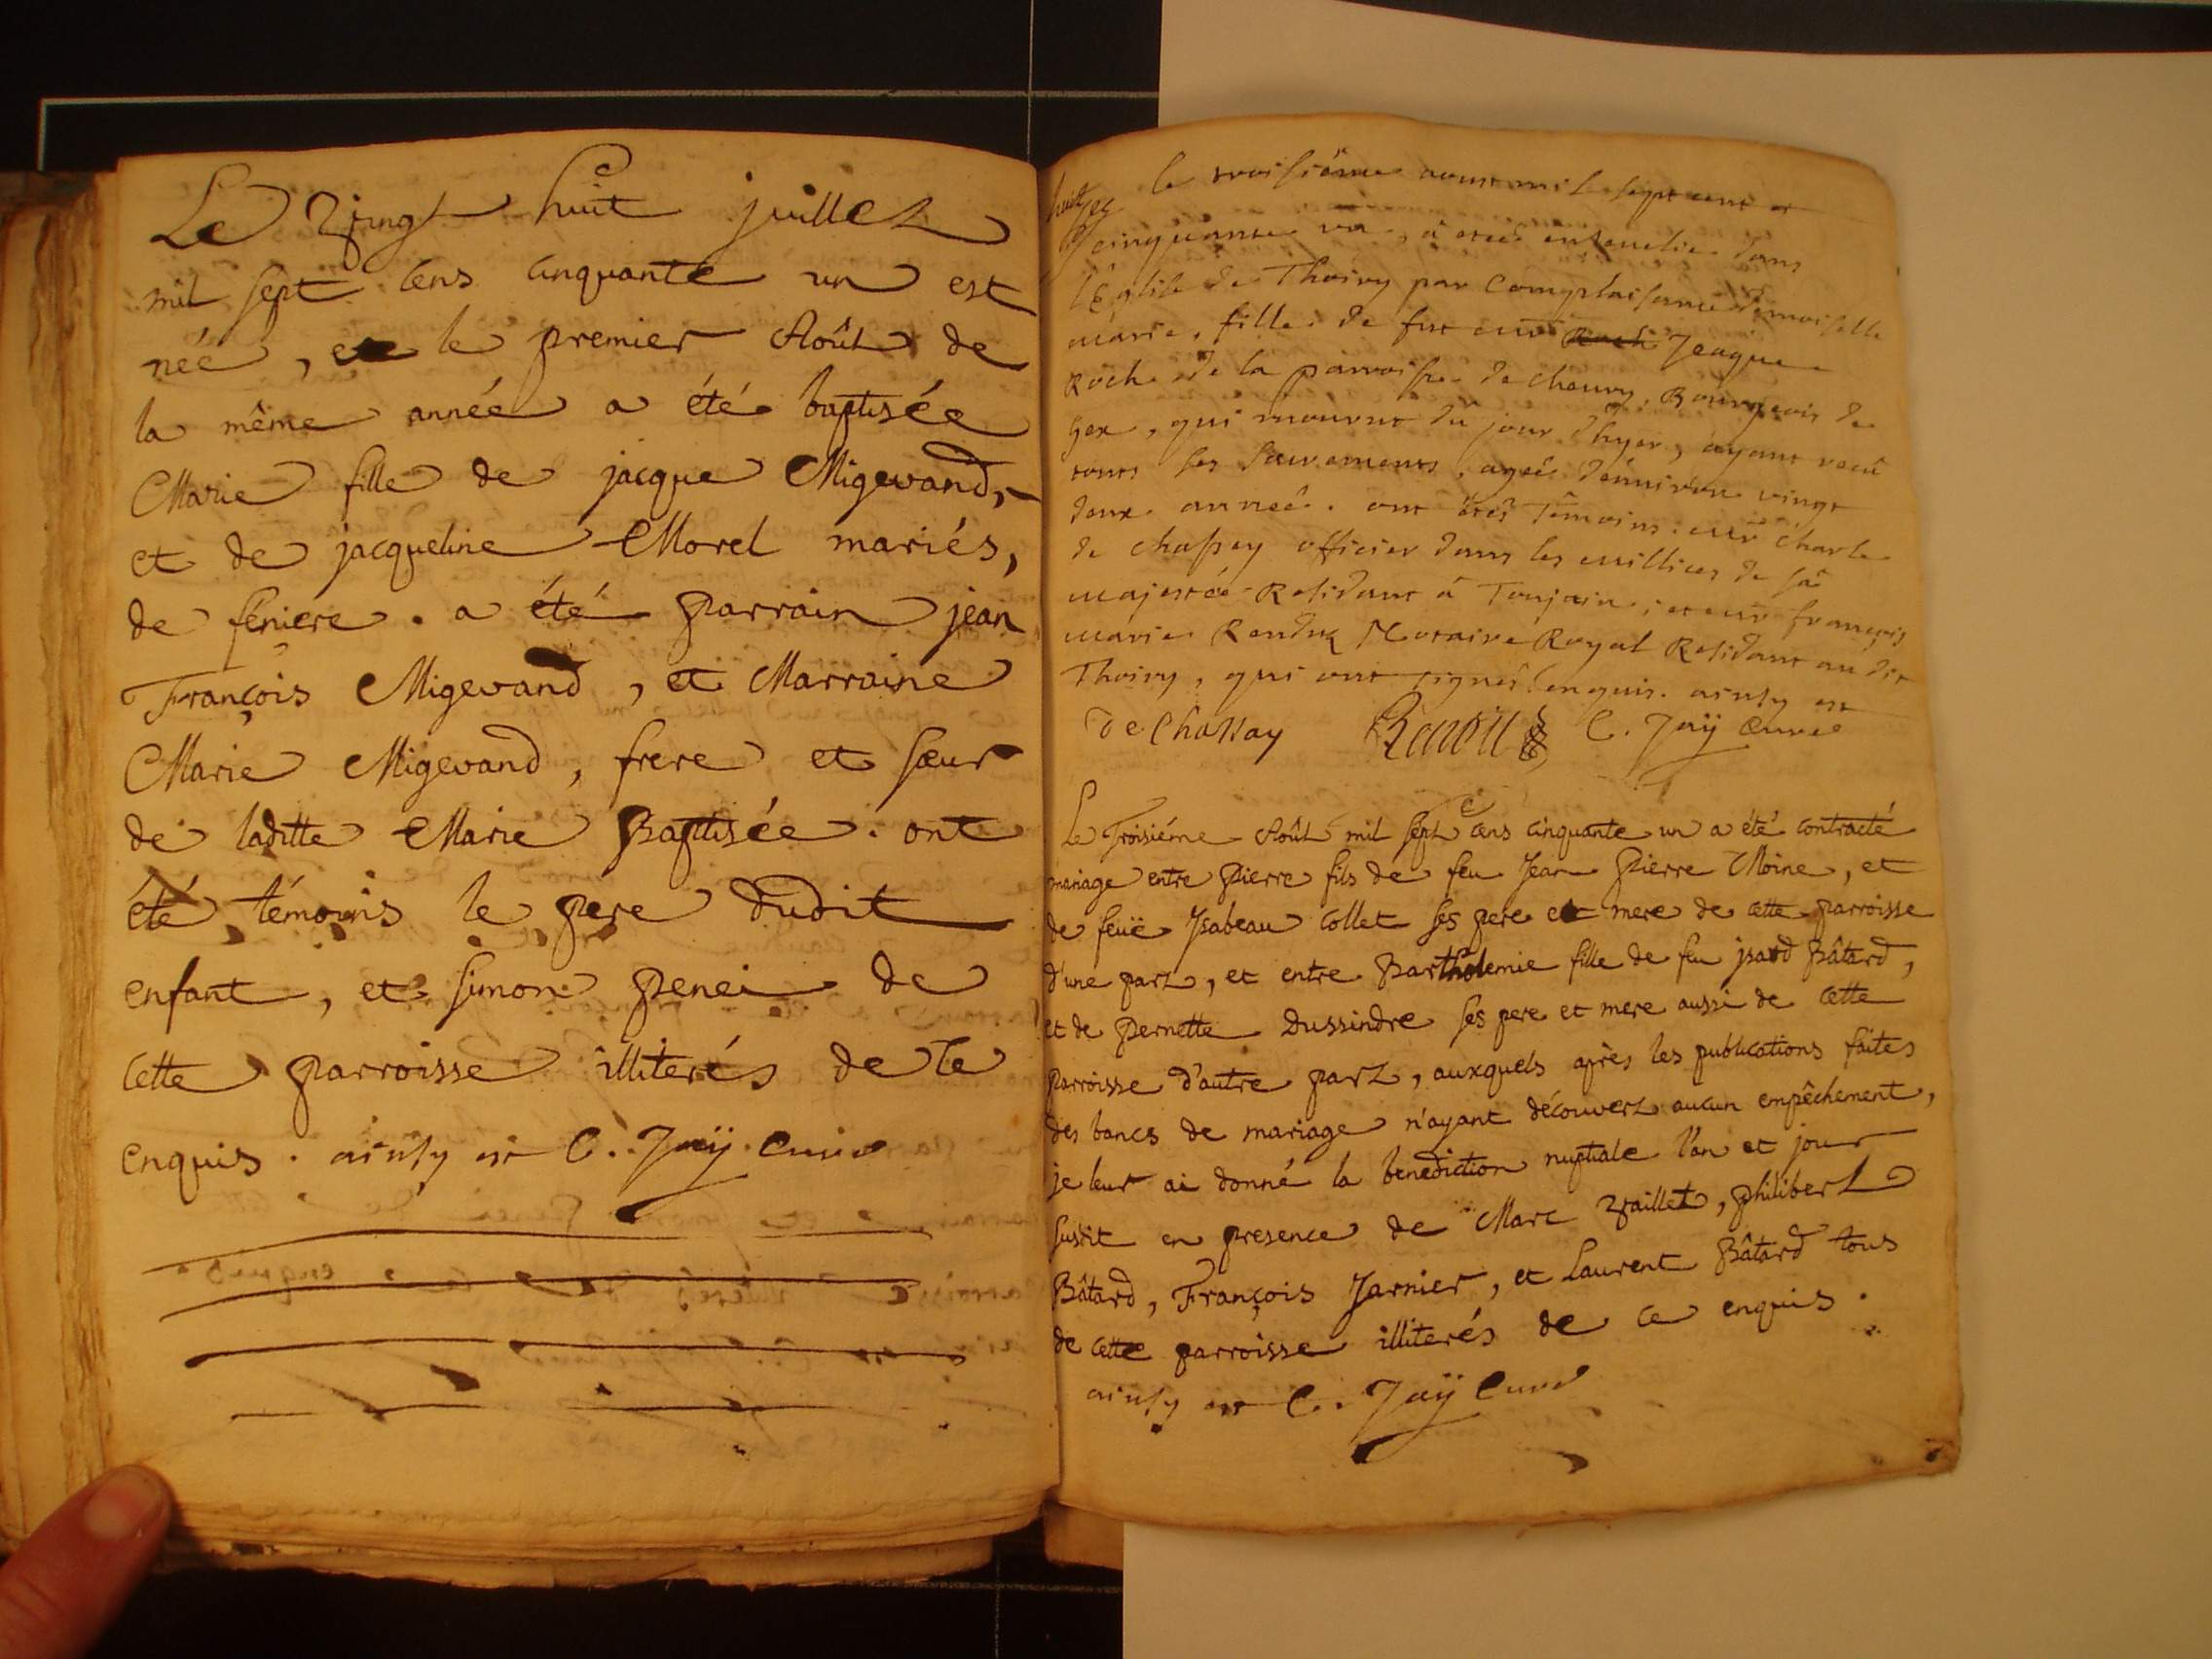 Le Vingt huit juillet
mil sept cens cinquante un est
née, et le premier Août de
la même année a été baptisée
Marie fille de jacque Migevand,
et de jacqueline Morel mariés,
de feniere. a été parrain jean
François Migevand, et Marraine
Marie Migevand, frere et sœur
de laditte Marie Baptisée. ont
été témoins le pere dudit
enfant, et simon penei de
cette parroisse illiterés de ce
enquis. ainsy est C. Jaÿ Curé
huit
le troisiême aoust mil sept cent et
cinquante un, à eteé ensevelie dans
l'Église de Thoiry par Complaisance demoiselle
marie, fille de fut Jeaque
Roch de la parroisse de chevry, Bourgeois de
Gex, qui mourut du jour d'hyer, ayant receû
touts ses sacrements, ageé dénviron vingt
deux anneé. ont étés Têmoins: charle
de chassey officier dans les millices de sâ
majestée Residant â Toujain, et françois
marie Rendu Notaire Royal Residant au dit
Thoiry, qui ont signés enquis. ainsy est
De Chassay Rendu C. Jaÿ Curé
Le Troisiéme Août mil sept cens cinquante un a été contracté
mariage entre pierre fils de feu Jean pierre Moine, et
de feuë Ysabeau Collet ses pere et mere de cette parroisse
d'une part, et entre Bartholemie fille de feu jsaod Bâtard,
et de pernette Dussindre ses pere et mere aussi de cette
parroisse d'autre part, auxquels après les publications faites
des bancs de mariage n'ayant découvert aucun empêchement,
je leur ai donné la benediction nuptiale l'an et jour
susdit en presence de Marc Vaillet, philibert
Bâtard, François Jarnier, et Laurent Bâtard tous
de cette parroisse illiterés de ce enquis.
ainsy est C. Jaÿ Curé